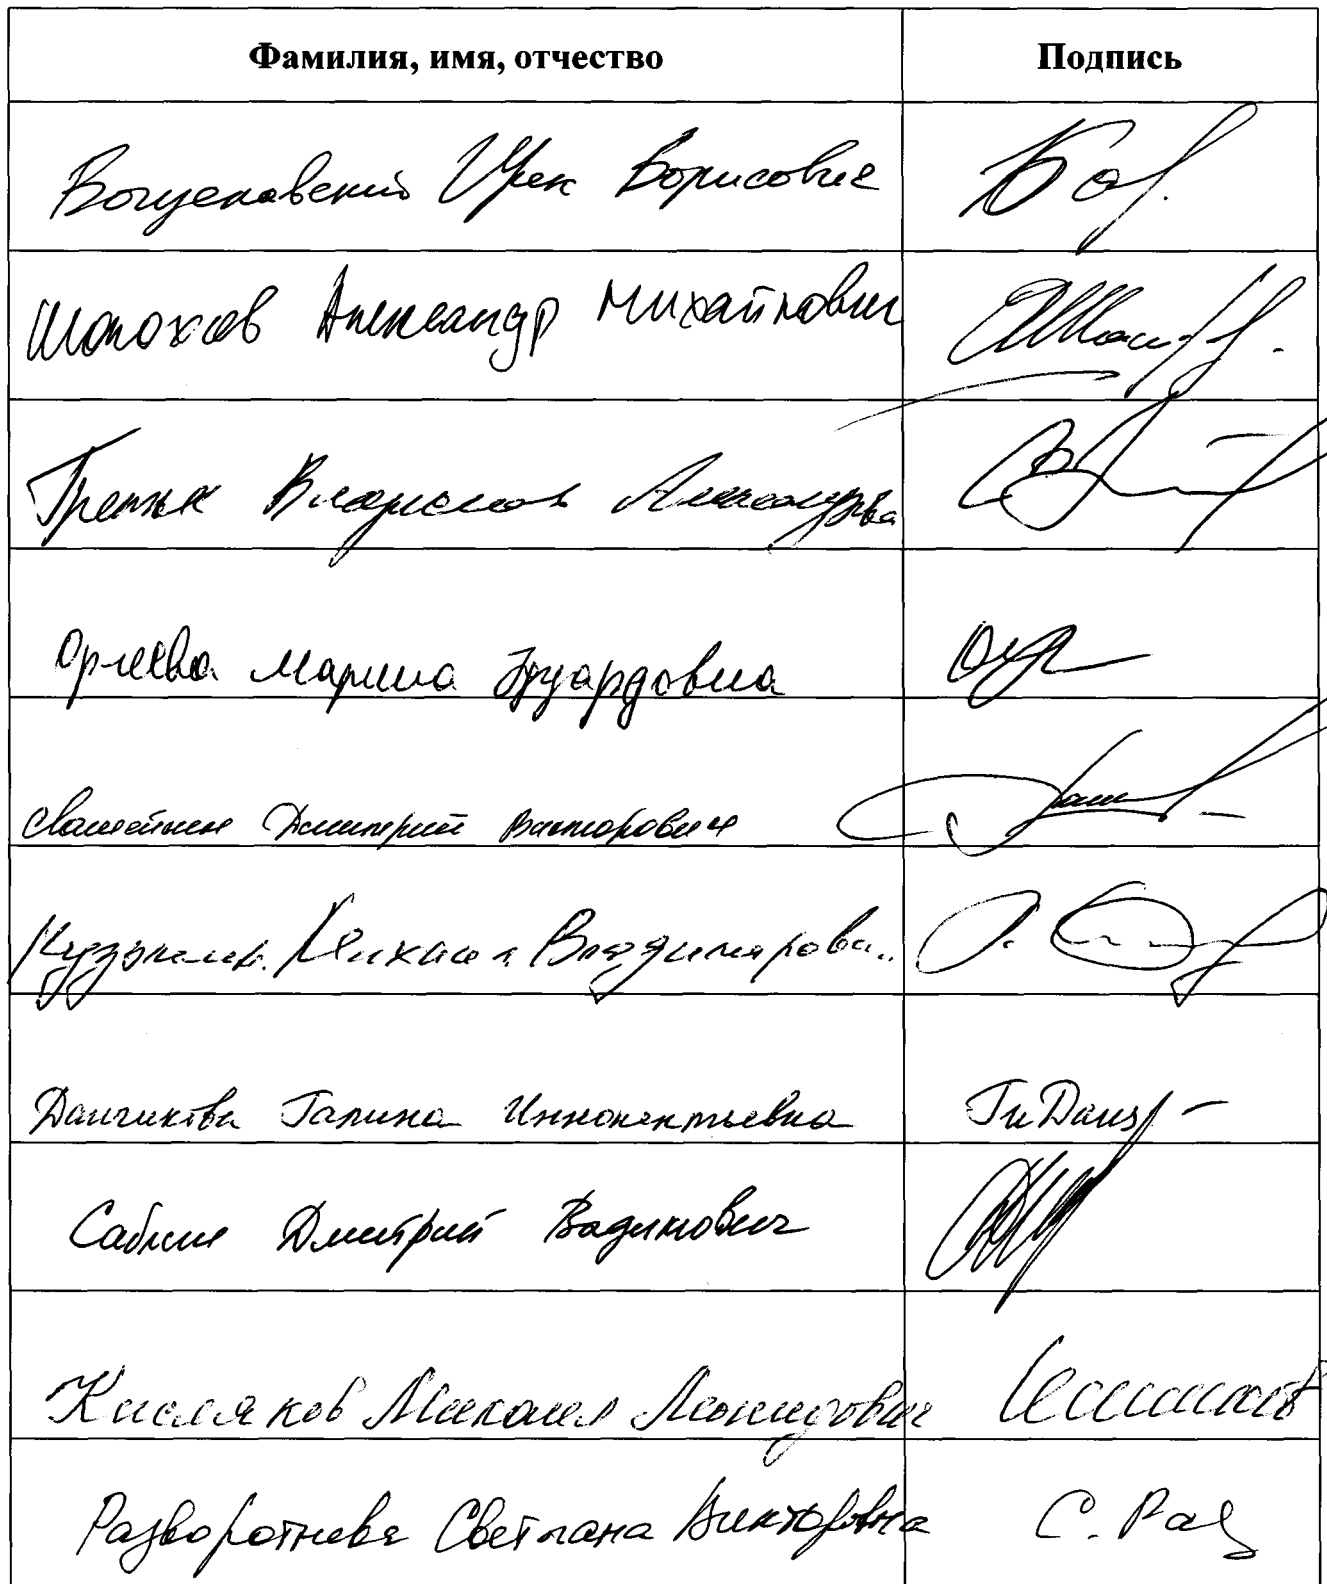 Фамилия, имя, отчество Подпись
Богуславский Ирек Борисович
Шолохов Александр Михайлович
Третьяк Владислав Александрова
Оргеева Марина Эдуардовна
Свищев Дмитрий Викторович
Кузьмин Михаил Владимирови..
Данчикова Галина Иннокентьевна
Саблин Дмитрий Вадимович
Кисляков Михаил Леонидович
Разворотнева Светлана Викторовна С. Раз